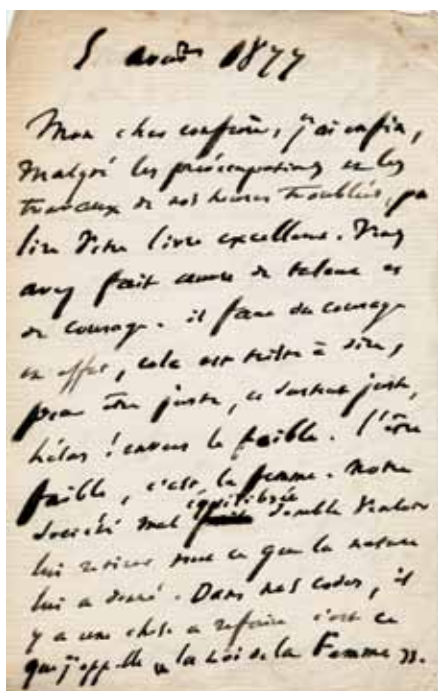 5 août 1877
Mon cher confrère, j'ai enfin,
malgré les préoccupations et les
travaux de nos heures troublées, pu
lire votre livre excellent. Vous
avez fait œuvre de talent et
de courage. il faut du courage
en effet, cela est triste à dire,
pour être juste, et surtout juste,
hélas ! envers le faible. l'être
faible, c'est la femme. Notre
société mal équilibrée semble vouloir
lui retirer tout ce que la nature
lui a donné. Dans nos codes, il
y a une chose à refaire c'est ce
que j'appelle « la loi de la Femme ».